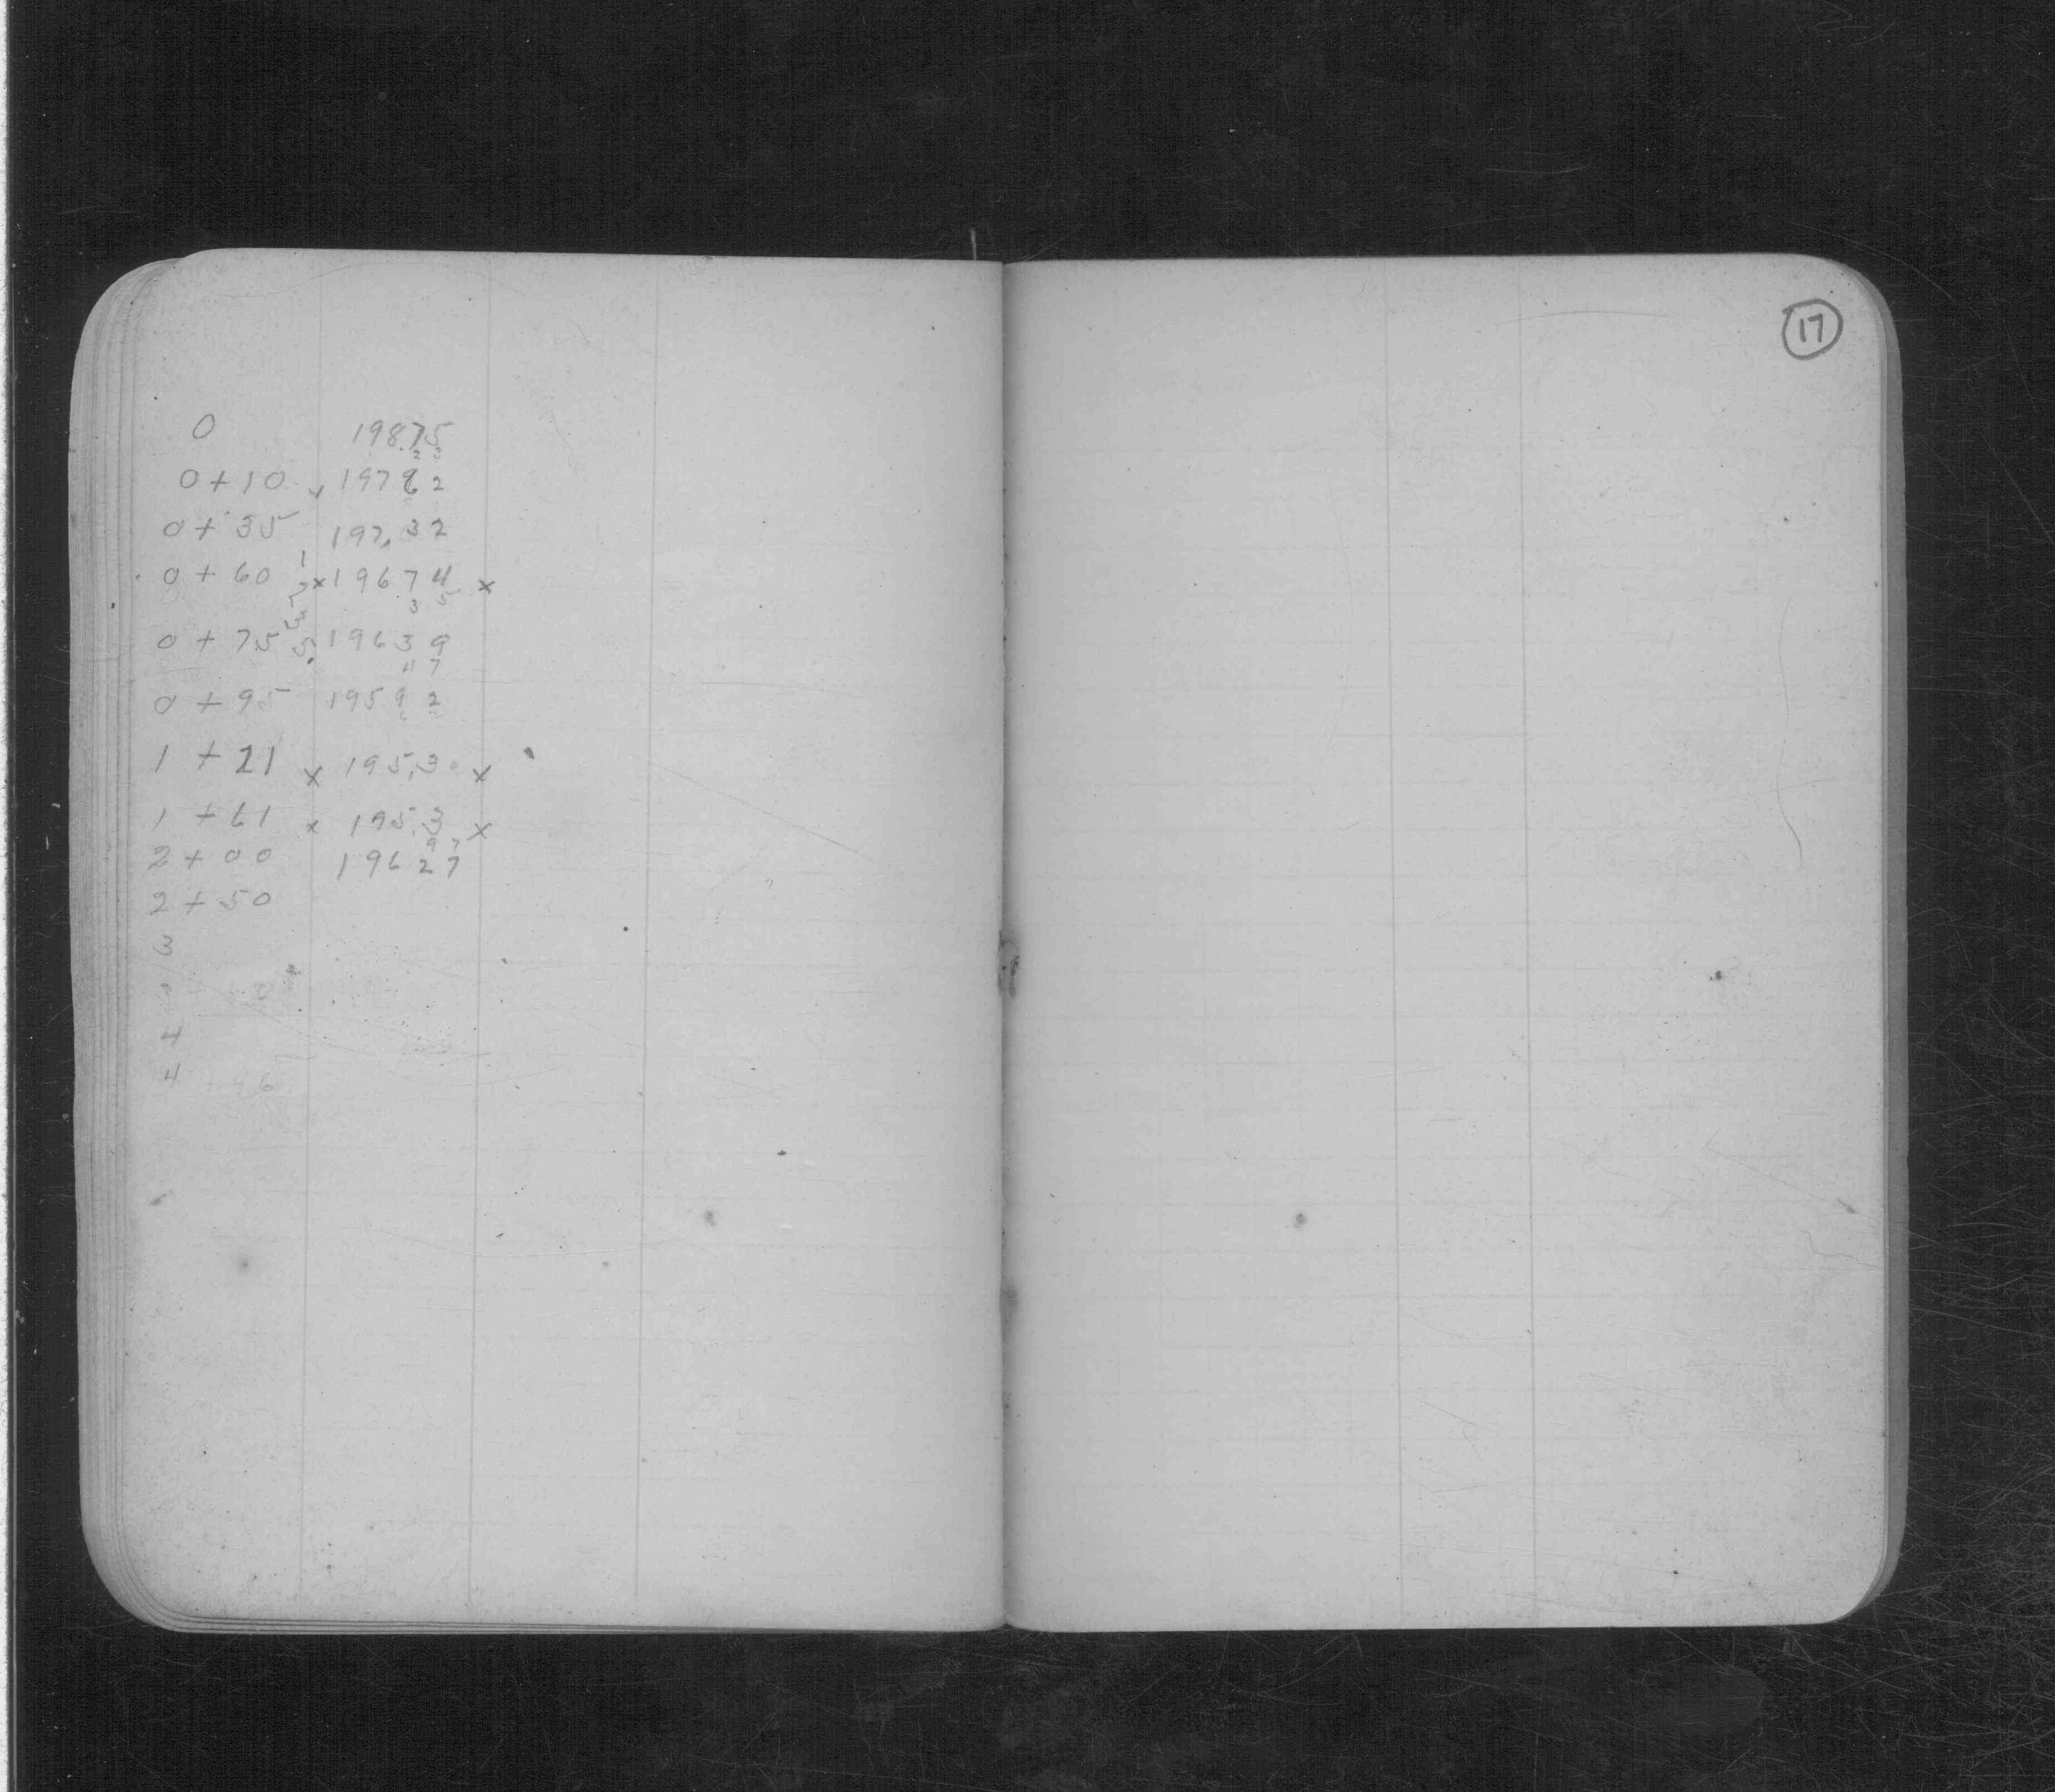 17
0 198.75
2 3
0+10 x 197 82
0+35 197.32
0+60 x 196 7 4 x
3 5
0+75 196 3 9
4 7
0+95 195 9 2
1+21 x 195.30 x
1+61 x 195.3 x
9 7
2+00 196 27
2+50
3
4
4 46